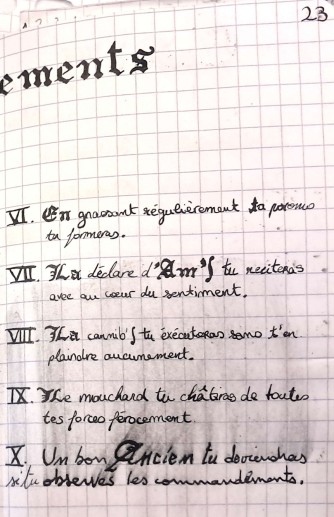 23
ements
VI. En graossant régulièrement ta
tu formeras.
VII. La déclare d'Am'ʃ tu reciteras
avec au cœur du sentiment.
VIII. La cannib'ʃ tu éxécuteras sans t'en
plaindre aucunement.
IX. Le mouchard tu châtiras de toutes
tes forces férocement.
X. Un bon Ancien tu deviendras
si tu observes les commandements.